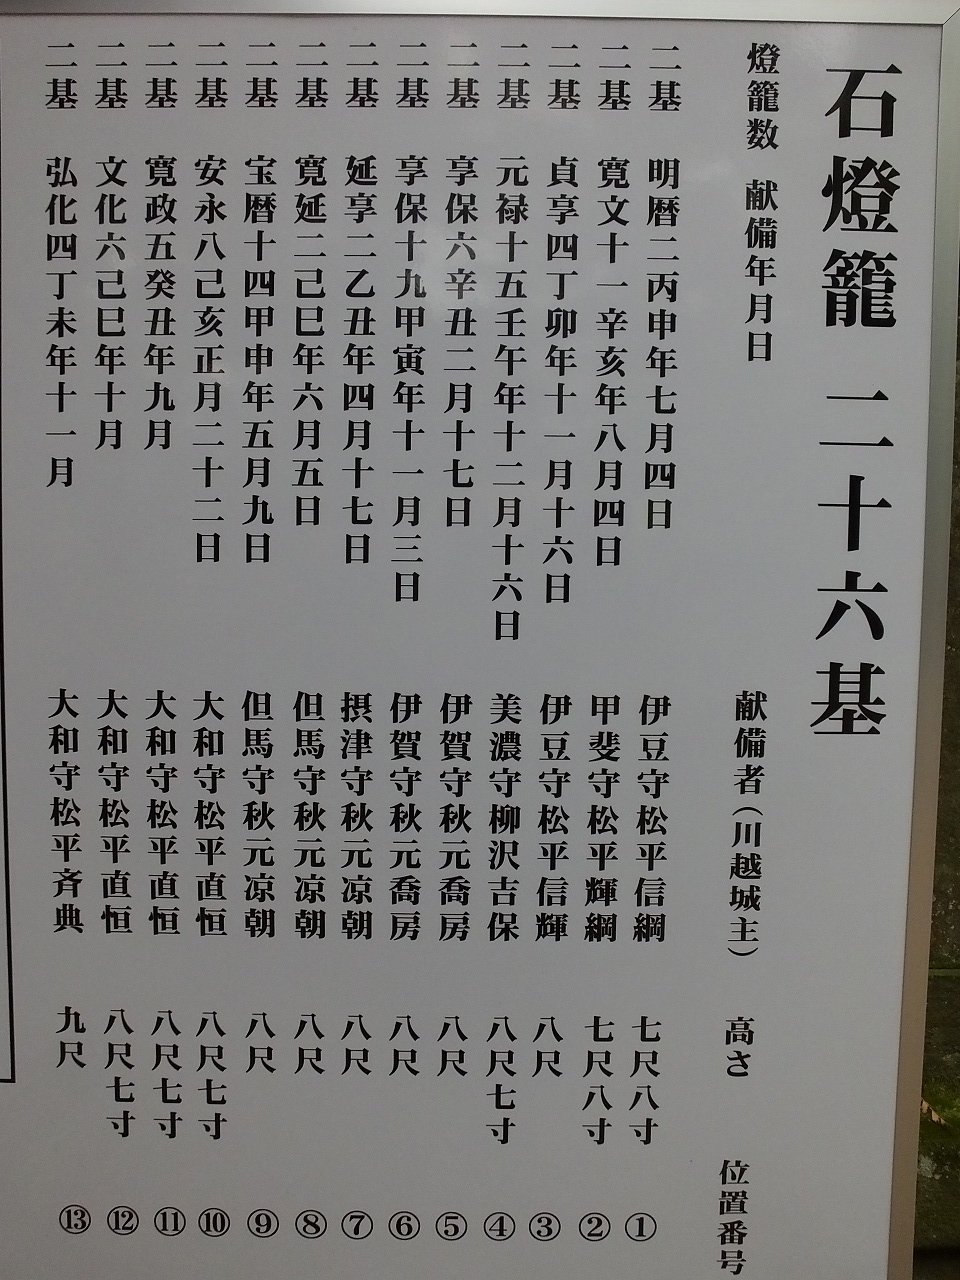 石燈籠 二十六基
燈籠数 献備年月日 献備者(川越城主) 高さ 位置番号
二基 明暦二丙申年七月四日 伊豆守松平信綱 七尺八寸 ①
二基 寛文十一辛亥年八月四日 甲斐守松平輝綱 七尺八寸 ②
二基 貞享四丁卯年十一月十六日 伊豆守松平信輝 八尺 ③
二基 元禄十五壬午年十二月十六日 美濃守柳沢吉保 八尺七寸 ④
二基 享保六辛丑二月十七日 伊賀守秋元喬房 八尺 ⑤
二基 享保十九甲寅年十一月三日 伊賀守秋元喬房 八尺 ⑥
二基 延享二乙丑年四月十七日 摂津守秋元凉朝 八尺 ⑦
二基 寛延二己巳年六月五日 但馬守秋元凉朝 八尺 ⑧
二基 宝暦十四甲申年五月九日 但馬守秋元凉朝 八尺 ⑨
二基 安永八己亥正月二十二日 大和守松平直恒 八尺七寸 ⑩
二基 寛政五癸丑年九月 大和守松平直恒 八尺七寸 ⑪
二基 文化六己巳年十月 大和守松平直恒 八尺七寸 ⑫
二基 弘化四丁未年十一月 大和守松平斉典 九尺 ⑬